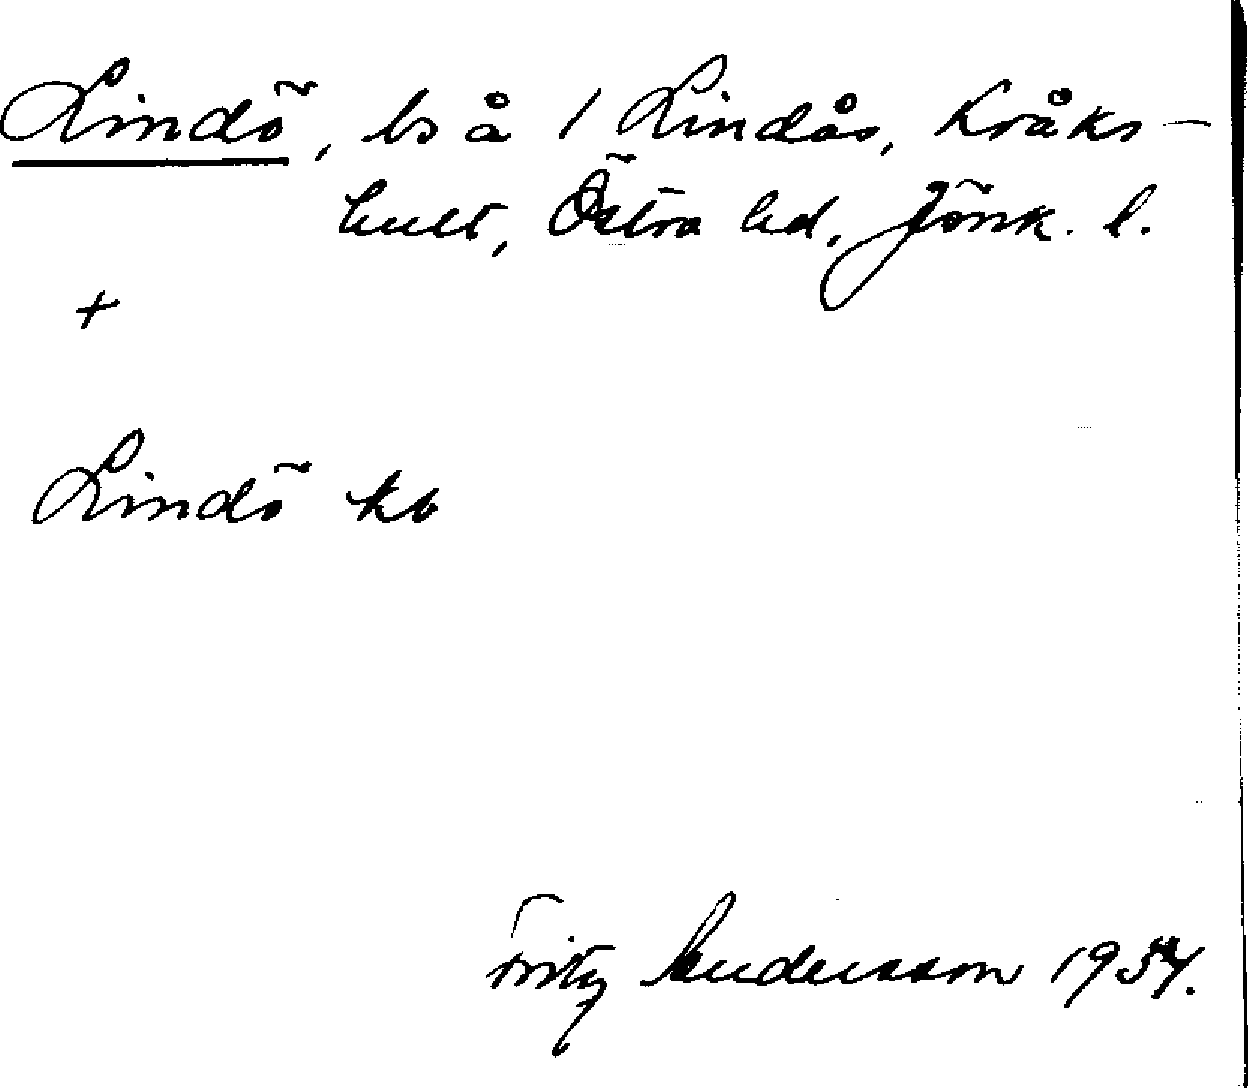 Lindö, bs å 1 Lindås, Kråks-
hult, Östra hd, Jönk. l.
+
Lindö kb
Fritz Andersson 1954.